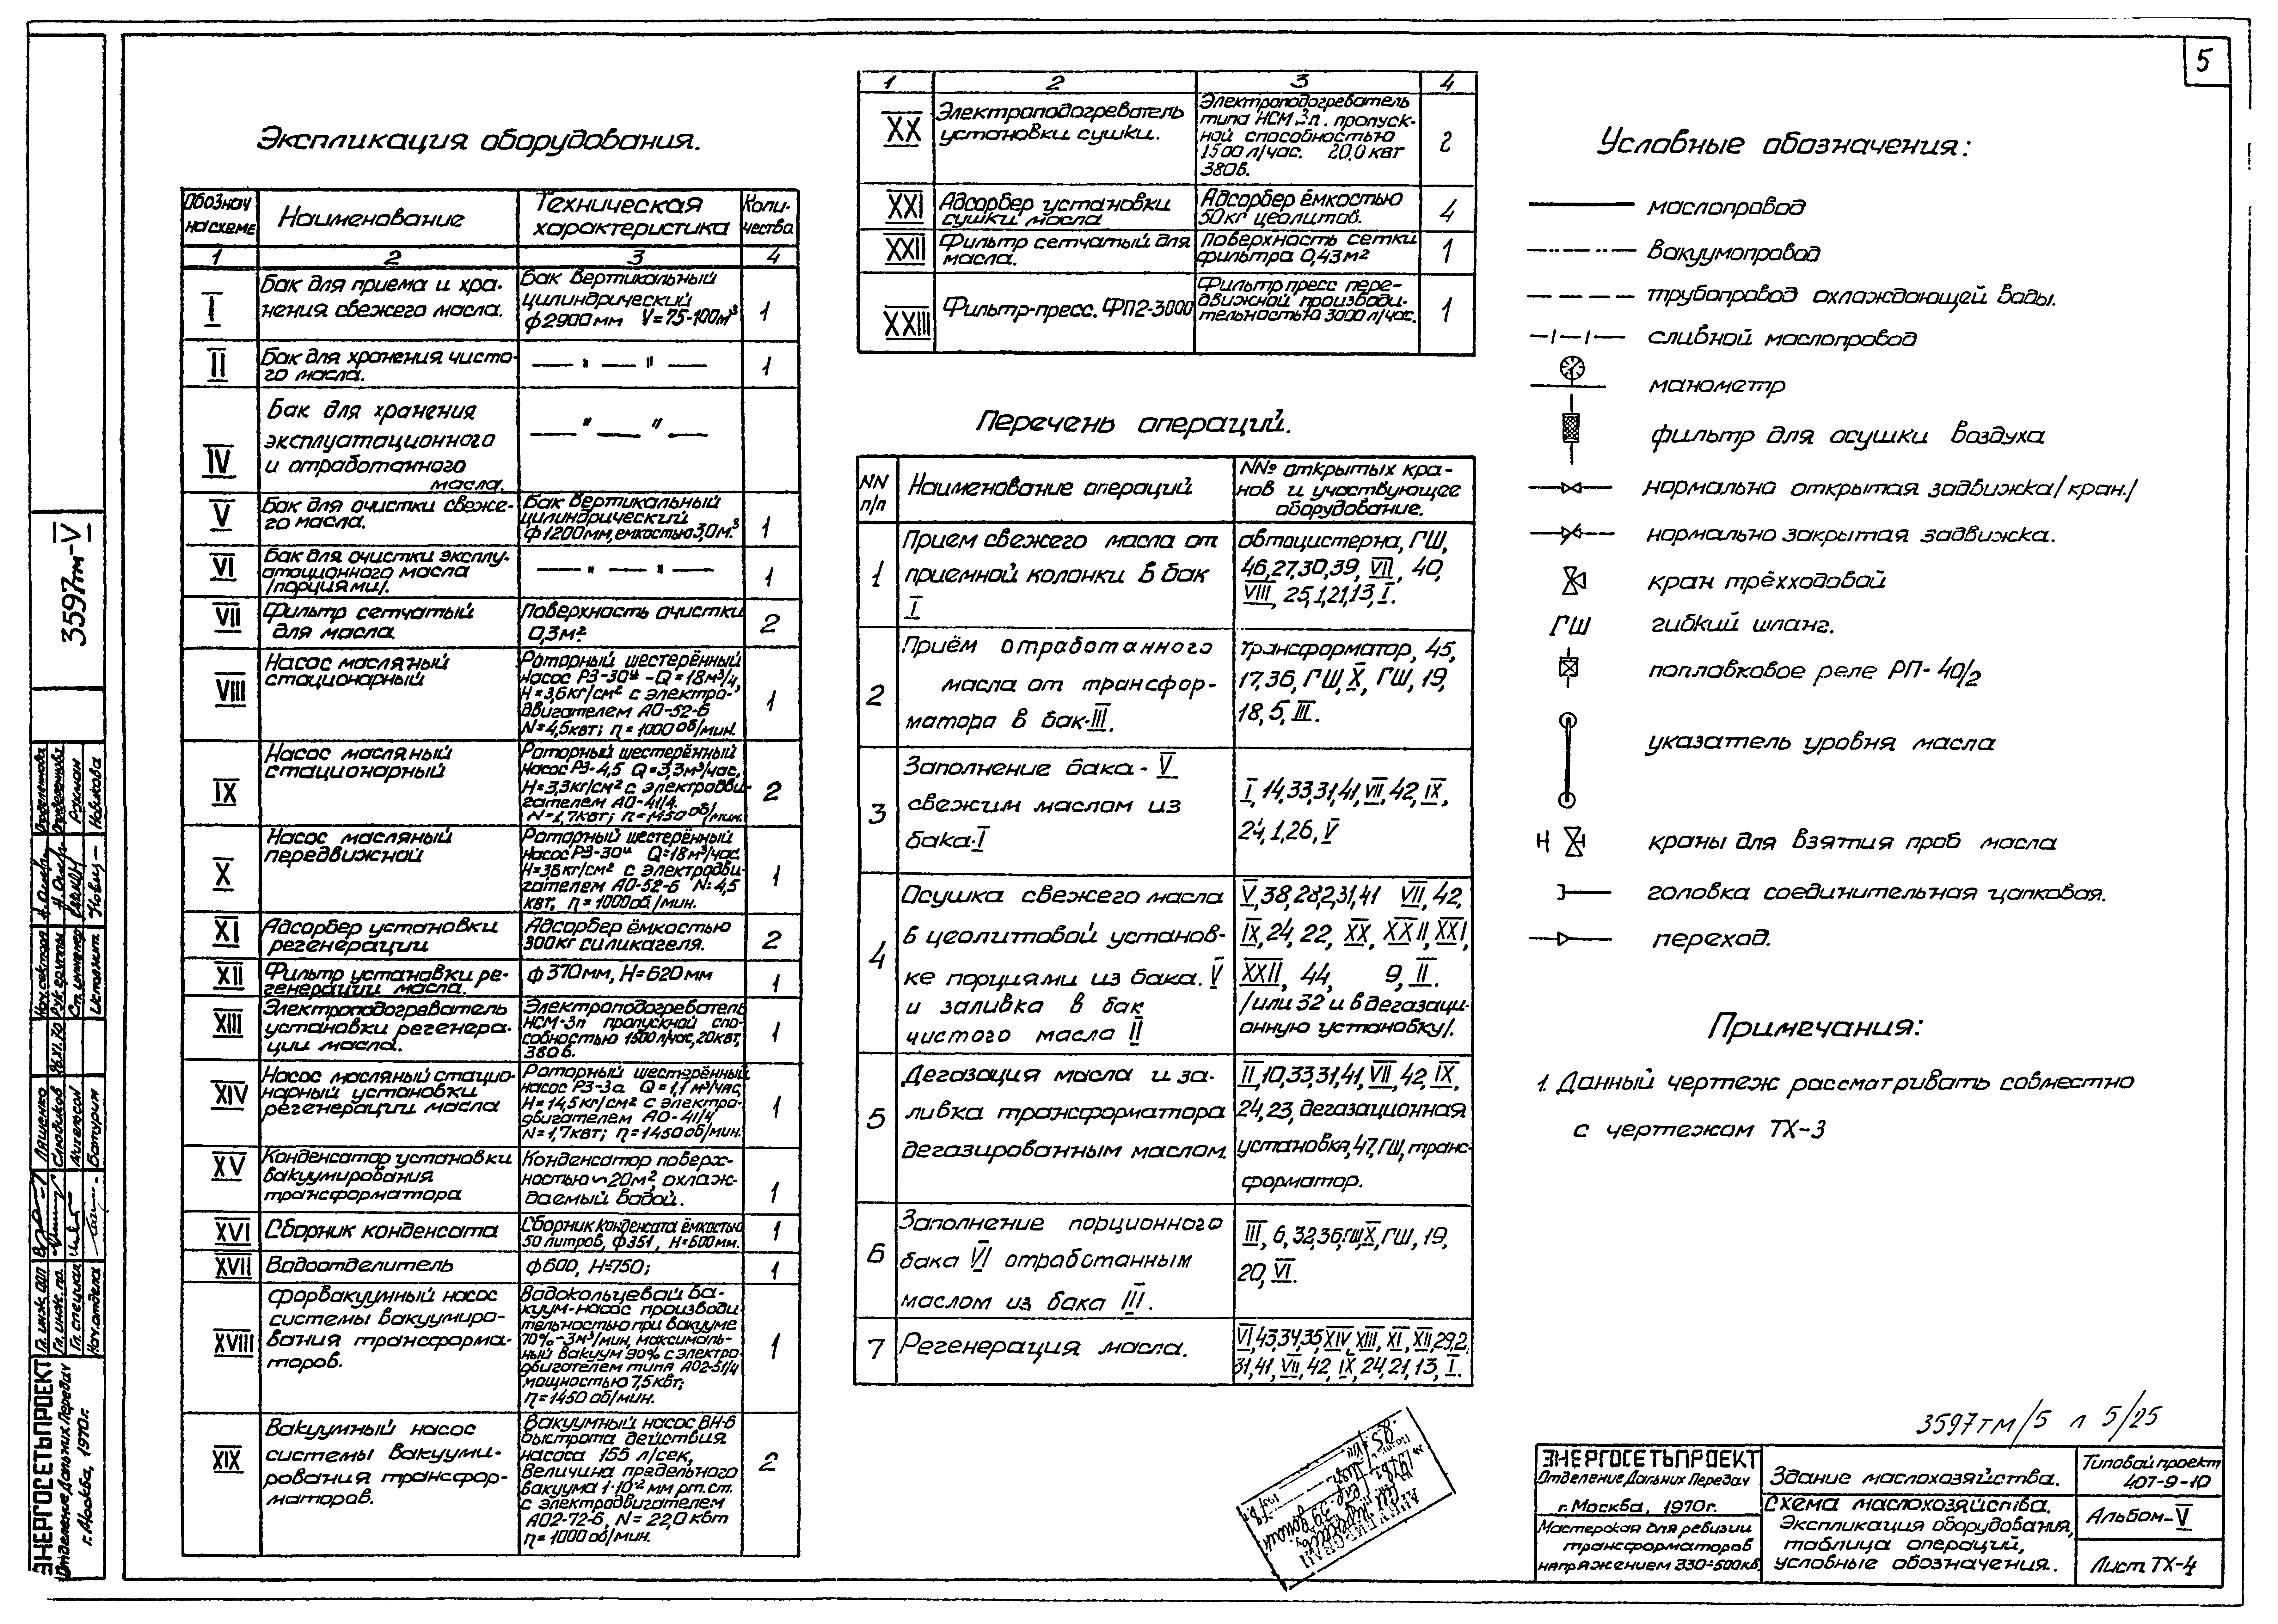 5
Экспликация оборудования.
Обознач на схеме
Наименование
Техническая характеристика
Коли- чества
1 2 3 4
I Бак для приема и хра- нения свежего масла. Бак вертикальный цилиндрический ф2900мм V=75-100м³ 1
II Бак для хранения чисто- го масла. — " — " — 1
IV Бак для хранения эксплуатационного и отработанного масла. — " — " —
V Бак для очистки свеже- го масла. Бак вертикальный цилиндрический ф1200мм, емкостью 3,0м³. 1
VI Бак для очистки эксплу- атационного масла /порциями/. — " — " — 1
VII Фильтр сетчатый для масла. Поверхность очистки 0,3м². 2
VIII Насос масляный стационарный Роторный шестерённый насос РЗ-30и -Q=18м³/ч, Н=3,6кг/см² с электро- двигателем АО-52-6 N=4,5квт; n=1000 об/мин. 1
IX Насос масляный стационарный Роторный шестерённый насос РЗ-4,5 Q=3,3м³/час, Н=3,3кг/см² с электродви- гателем АО-41/4. N=1,7квт; n=1450 об/мин. 2
X Насос масляный передвижной Роторный шестерённый насос РЗ-30и Q=18м³/час Н=36кг/см² с электродви- гателем АО-52-6 N=4,5 квт, n=1000об./мин. 1
XI Адсорбер установки регенерации Адсорбер ёмкостью 300кг силикагеля. 2
XII Фильтр установки ре- генерации масла. ф370мм, Н=620мм 1
XIII Электроподогреватель установки регенера- ции масла. Электроподогреватель НСМ-3п пропускной спо- собностью 1500л/час, 20квт, 380в. 1
XIV Насос масляный стацио- нарный установки регенерации масла Роторный шестерённый насос РЗ-3а Q=1,1м³/час, Н=14,5кг/см² с электро- двигателем АО-41/4 N=1,7квт; n=1450об/мин. 1
XV Конденсатор установки вакуумирования трансформатора Конденсатор поверх- ностью ~20м², охлаж- даемый водой. 1
XVI Сборник конденсата Сборник конденсата ёмкостью 50 литров, ф351, Н=600мм. 1
XVII Водоотделитель ф600, Н=750; 1
XVIII Форвакуумный насос системы вакуумиро- вания трансформа- торов. Водокольцевой ва- куум-насос производи- тельностью при вакууме 70%-3м³/мин, максималь- ный вакуум 90% с электро- двигателем типа АО2-51/4 мощностью 7,5квт; n=1450 об/мин. 1
XIX Вакуумный насос системы вакууми- рования трансфор- маторов. Вакуумный насос ВН-6 быстрота действия насоса 155 л/сек, Величина предельного вакуума 1·10⁻² мм рт.ст. с электродвигателем АО2-72-6, N=22,0 квт n=1000 об/мин. 2
1 2 3 4
XX Электроподогреватель установки сушки. Электроподогреватель типа НСМ 3п. пропуск- ной способностью 1500 л/час. 20,0 квт 380в. 2
XXI Адсорбер установки сушки масла Адсорбер ёмкостью 50кг цеолитов. 4
XXII Фильтр сетчатый для масла. Поверхность сетки фильтра 0,43м² 1
XXIII Фильтр-пресс. ФП2-3000 Фильтр пресс пере- движной производи- тельностью 3000 л/час. 1
Перечень операций.
NN п/п
Наименование операций
NN° открытых кра- нов и участвующее оборудование.
1 Прием свежего масла от приемной колонки в бак I автоцистерна, ГШ, 46,27,30,39, VII, 40, VIII, 25,1,21,13, I.
2 Приём отработанного масла от трансфор- матора в бак-III. Трансформатор, 45, 17,36, ГШ, X, ГШ, 19, 18,5, III.
3 Заполнение бака-V свежим маслом из бака-I I, 14,33,31,41, VII, 42, IX, 24,1,26, V
4 Осушка свежего масла в цеолитовой установ- ке порциями из бака. V и заливка в бак чистого масла II V, 38,28,2,31,41 VII, 42, IX, 24, 22, XX, XXII, XXI, XXII, 44, 9, II. /или 32 и в дегазаци- онную установку/.
5 Дегазация масла и за- ливка трансформатора дегазированным маслом. II,10,33,31,41, VII, 42, IX, 24,23, дегазационная установка, 47, ГШ, транс- форматор.
6 Заполнение порционного бака VI отработанным маслом из бака III. III, 6,32,36,ГШ,X,ГШ, 19, 20, VI.
7 Регенерация масла. VI,43,34,35,XIV,XIII, XI, XII,29,2, 31,41, VII, 42, IX, 24,21,13, I.
Условные обозначения:
маслопровод
вакуумопровод
трубопровод охлаждающей воды.
сливной маслопровод
манометр
фильтр для осушки воздуха
нормально открытая задвижка /кран./
нормально закрытая задвижка.
кран трёхходовой
ГШ гибкий шланг.
поплавковое реле РП-40/2
указатель уровня масла
Н краны для взятия проб масла
головка соединительная цапковая.
переход.
Примечания:
1. Данный чертеж рассматривать совместно
с чертежом ТХ-3
3597тм/5 л 5/25
ЭНЕРГОСЕТЬПРОЕКТ
Отделение Дальних Передач
г. Москва, 1970г.
Мастерская для ревизии
трансформаторов
напряжением 330÷500кв.
Здание маслохозяйства.
Схема маслохозяйства.
Экспликация оборудования,
таблица операций,
условные обозначения.
Типовой проект
407-9-10
Альбом-V
Лист ТХ-4
3597тм-V
Нач.сектора
Рук.группы
Ст.инженер
Исполнит.
Новикова
Гл. инж. ОДП Ляшенко
Гл. инж. пр. Словиков
Гл. специал. Мительсон
Нач.отдела Батурин
ЭНЕРГОСЕТЬПРОЕКТ
Отделение Дальних Передач
г. Москва, 1970г.